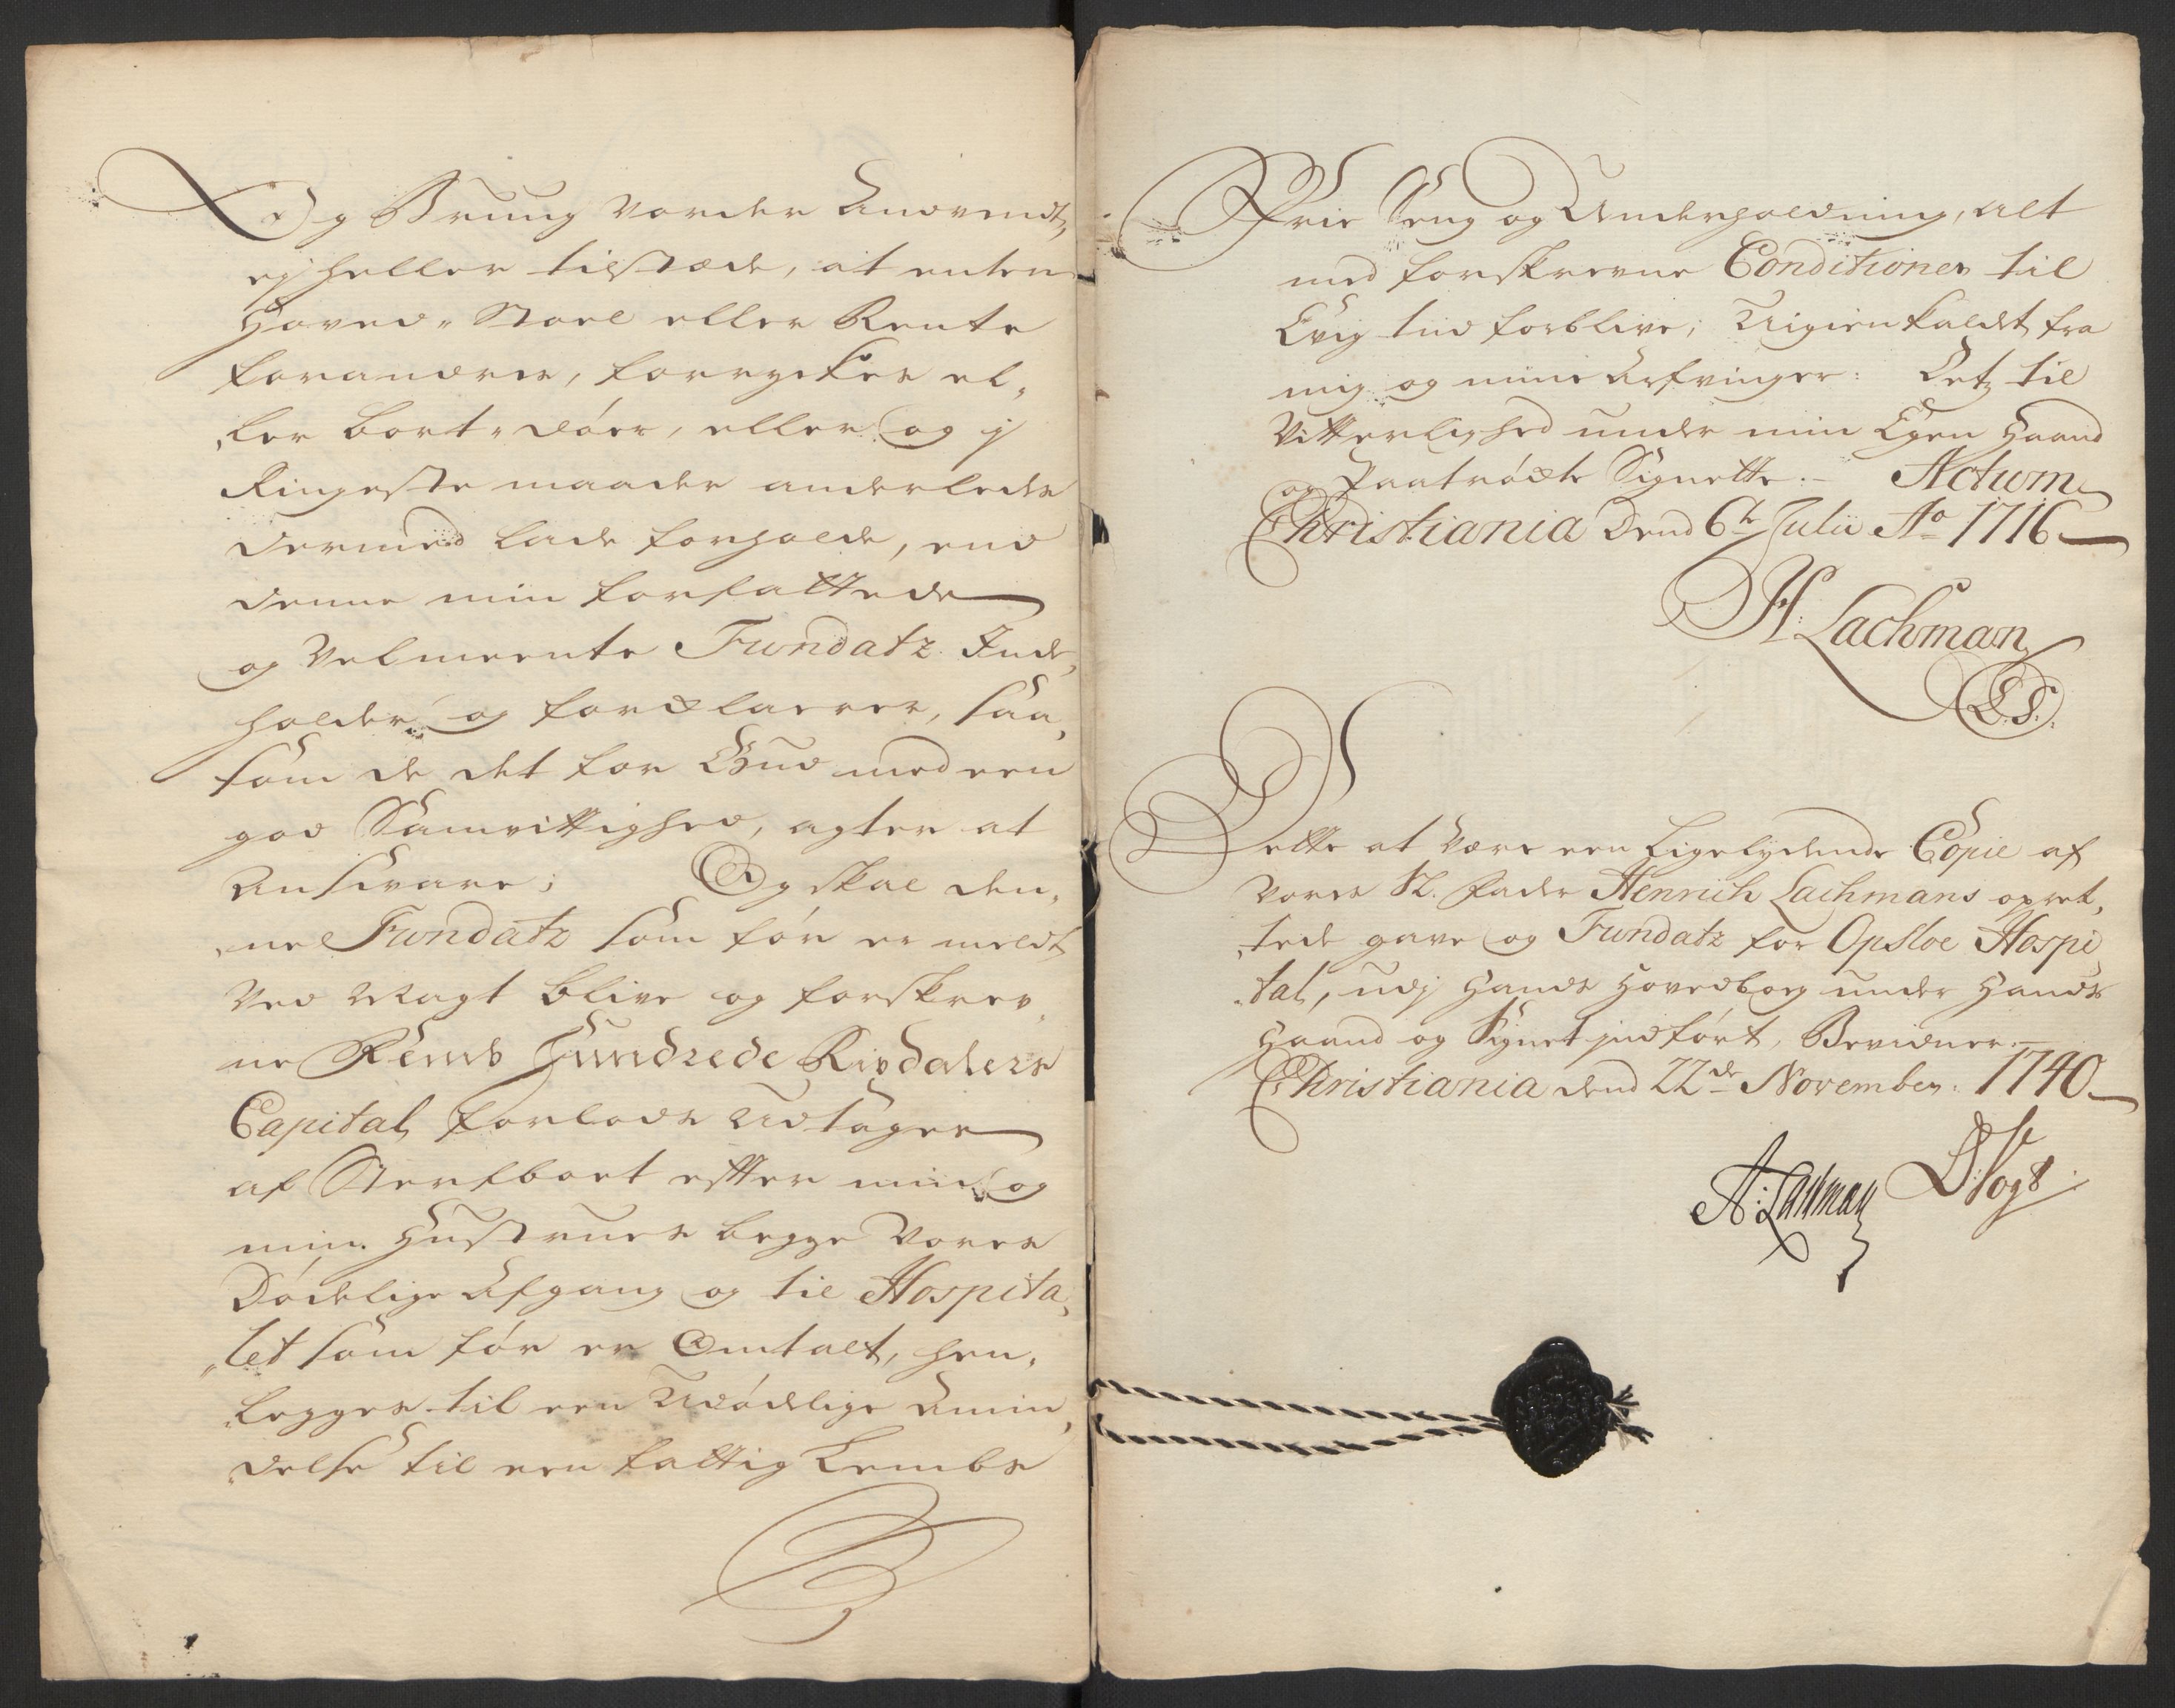 Og Brung vorder Anvendt,
ej heller tilstæde, at enten
Hoved-Stoel eller Rente
forandres, forryckes el,
,ler bort-döer, eller og j
Ringeste maader anderledes
dermed lade forholde, end
denne min forfattede
og Velmeente Fundatz Inde,
holder og forklarer, saa,
som de det for Gud med een
god Samvittighed, agter at
Ansvare; Og skal den,
,ne Fundatz som för er meldt
Ved Magt blive og forskrev,
ne Femb Hundrede Rixdalers
Capital, forlods Udtages
af Sterfboet efter min og
min Hustrues begge Vores
Dödelige Afgang og til Hospita,
,let som för er Omtalt, hen,
,legges til een Udödelige Amin,
,delse til een fattig Lembs
Frie Seng og Underholdning, alt
med forskrevne Conditioner til
Evig tid forblive; Uigienkaldt fra
mig og mine Arfvinger: Detz til
Vitterlighed under min Egen Haand
og Paatröckte Signette.- Actum
Christiania Dend 6te Julii Ao 1716
H: Lachman
L.S.
Dette at Være een Ligelydende Copie af
Vores Sl. Fader Henrich Lachmans opret,
,tede gave og Fundatz for Opsloe Hospi,
,tal, udj Hands Hovedbog under Hands
Haand og Signet indfört, Bevidner.
Christiania dend 22de November: 1740
A: Lachman D: Vogt